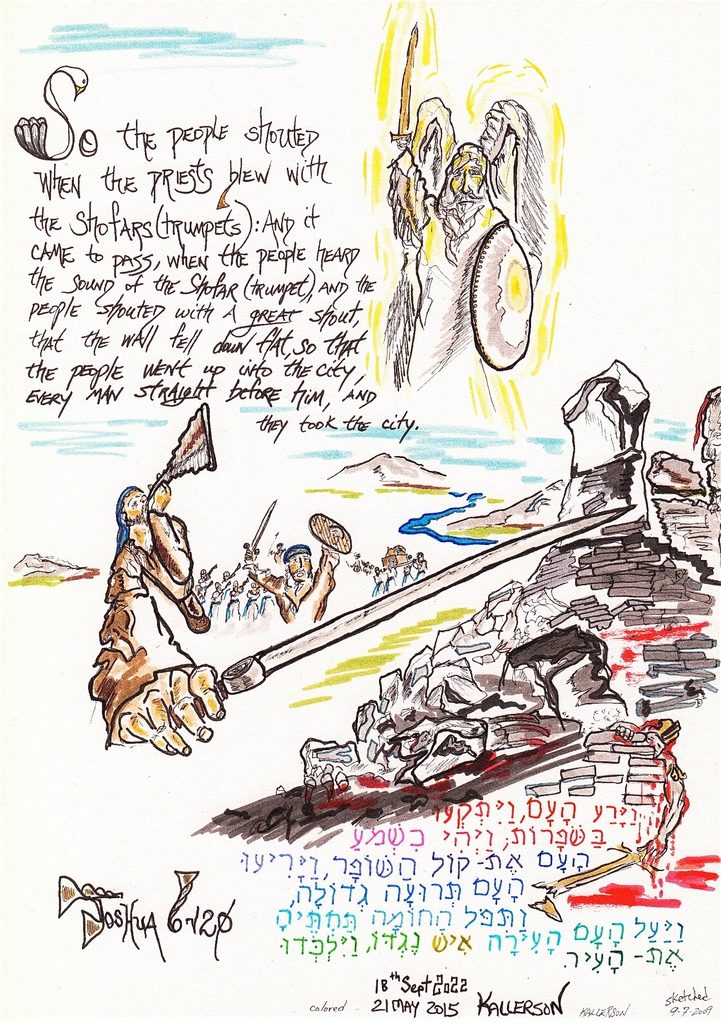 So the people shouted
when the priests blew with
the Shofars (trumpets): And it
came to pass, when the people heard
the sound of the Shofar (trumpet), and the
people shouted with a great shout,
that the wall fell down flat, so that
the people went up into the city,
every man straight before him, and
they took the city.
וַיָּרַע הָעָם, וַיִּתְקְעוּ
בַּשֹּׁפָרוֹת, וַיְהִי כִשְׁמֹעַ
הָעָם אֶת-קוֹל הַשּׁוֹפָר, וַיָּרִיעוּ
הָעָם תְּרוּעָה גְדוֹלָה,
וַתִּפֹּל הַחוֹמָה תַּחְתֶּיהָ
וַיַּעַל הָעָם הָעִירָה אִישׁ נֶגְדּוֹ, וַיִּלְכְּדוּ
אֶת-הָעִיר.
Joshua 6v20
18th Sept 2022
colored 21 May 2015 KALLERSON KALLERSON sketched
9-7-2009